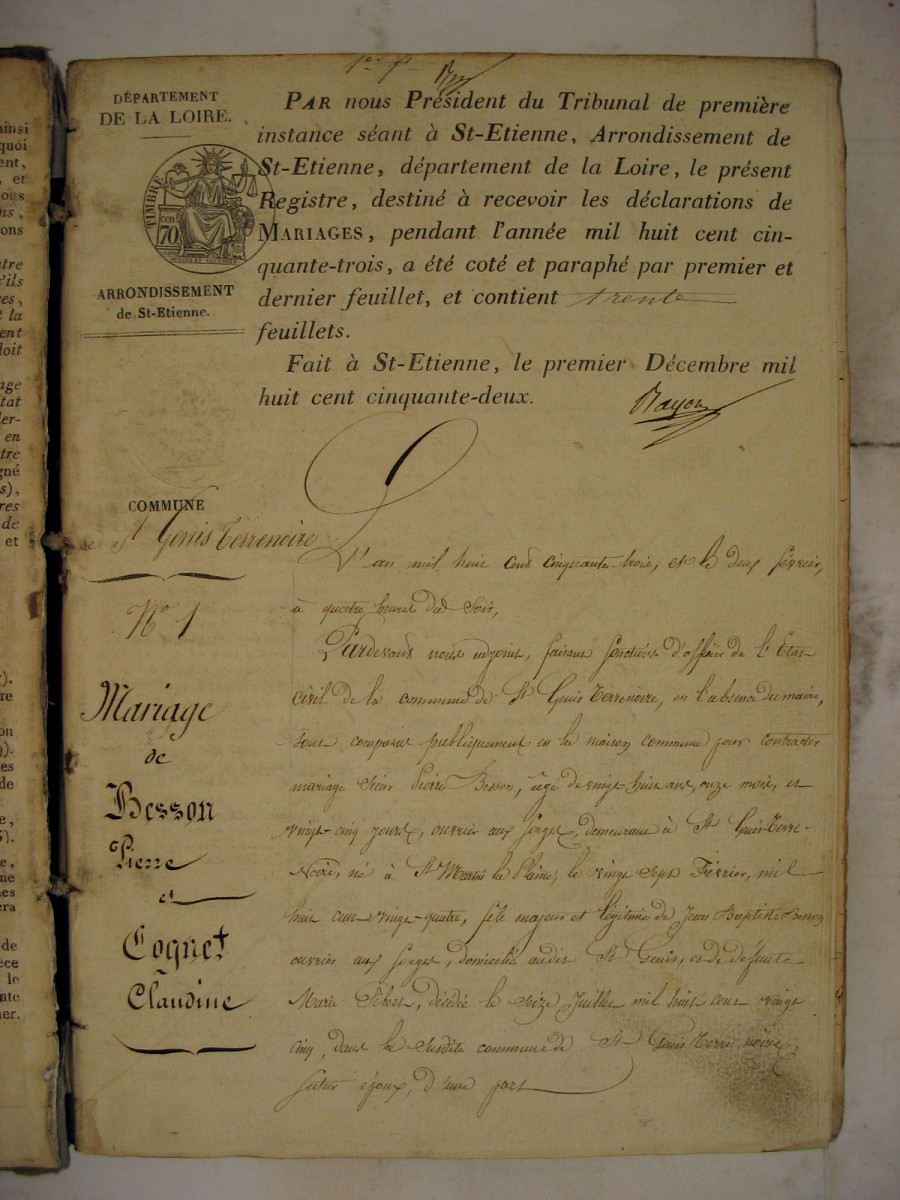 1er ft
DÉPARTEMENT
DE LA LOIRE.
TIMBRE
cen
70
ARRONDISSEMENT
de St-Etienne.
PAR nous Président du Tribunal de première
instance séant à St-Etienne, Arrondissement de
St-Etienne, département de la Loire, le présent
Registre, destiné à recevoir les déclarations de
MARIAGES, pendant l'année mil huit cent cin-
quante-trois, a été coté et paraphé par premier et
dernier feuillet, et contient trente
feuillets.
Fait à St-Etienne, le premier Décembre mil
huit cent cinquante-deux.
COMMUNE
de St Genis Terrenoire
No 1
Mariage
de
Besson
Pierre
et
Cognet
Claudine
L'an mil huit cent cinquante-trois, et le deux février,
à quatre heures du soir,
Pardevant nous adjoint, faisant fonctions d'officier de l'Etat
civil de la commune de St Genis Terrenoire, en l'absence du maire,
sont comparus publiquement en la maison commune pour contracter
mariage Sieur Pierre Besson, âgé de vingt-huit ans, onze mois, et
vingt-cinq jours, ouvrier aux forges, demeurant à St Genis-Terre-
Noire, né à St Martin la Plaine, le vingt sept Février, mil
huit cent vingt-quatre, fils majeur et légitime de Jean Baptiste Besson
ouvrier aux forges, domicilié audit St Genis, et de defunte
Marie, décédée le seize Juillet mil huit cent vingt
cinq, dans la susdite commune de St Genis Terre noire,
futur époux, d'une part